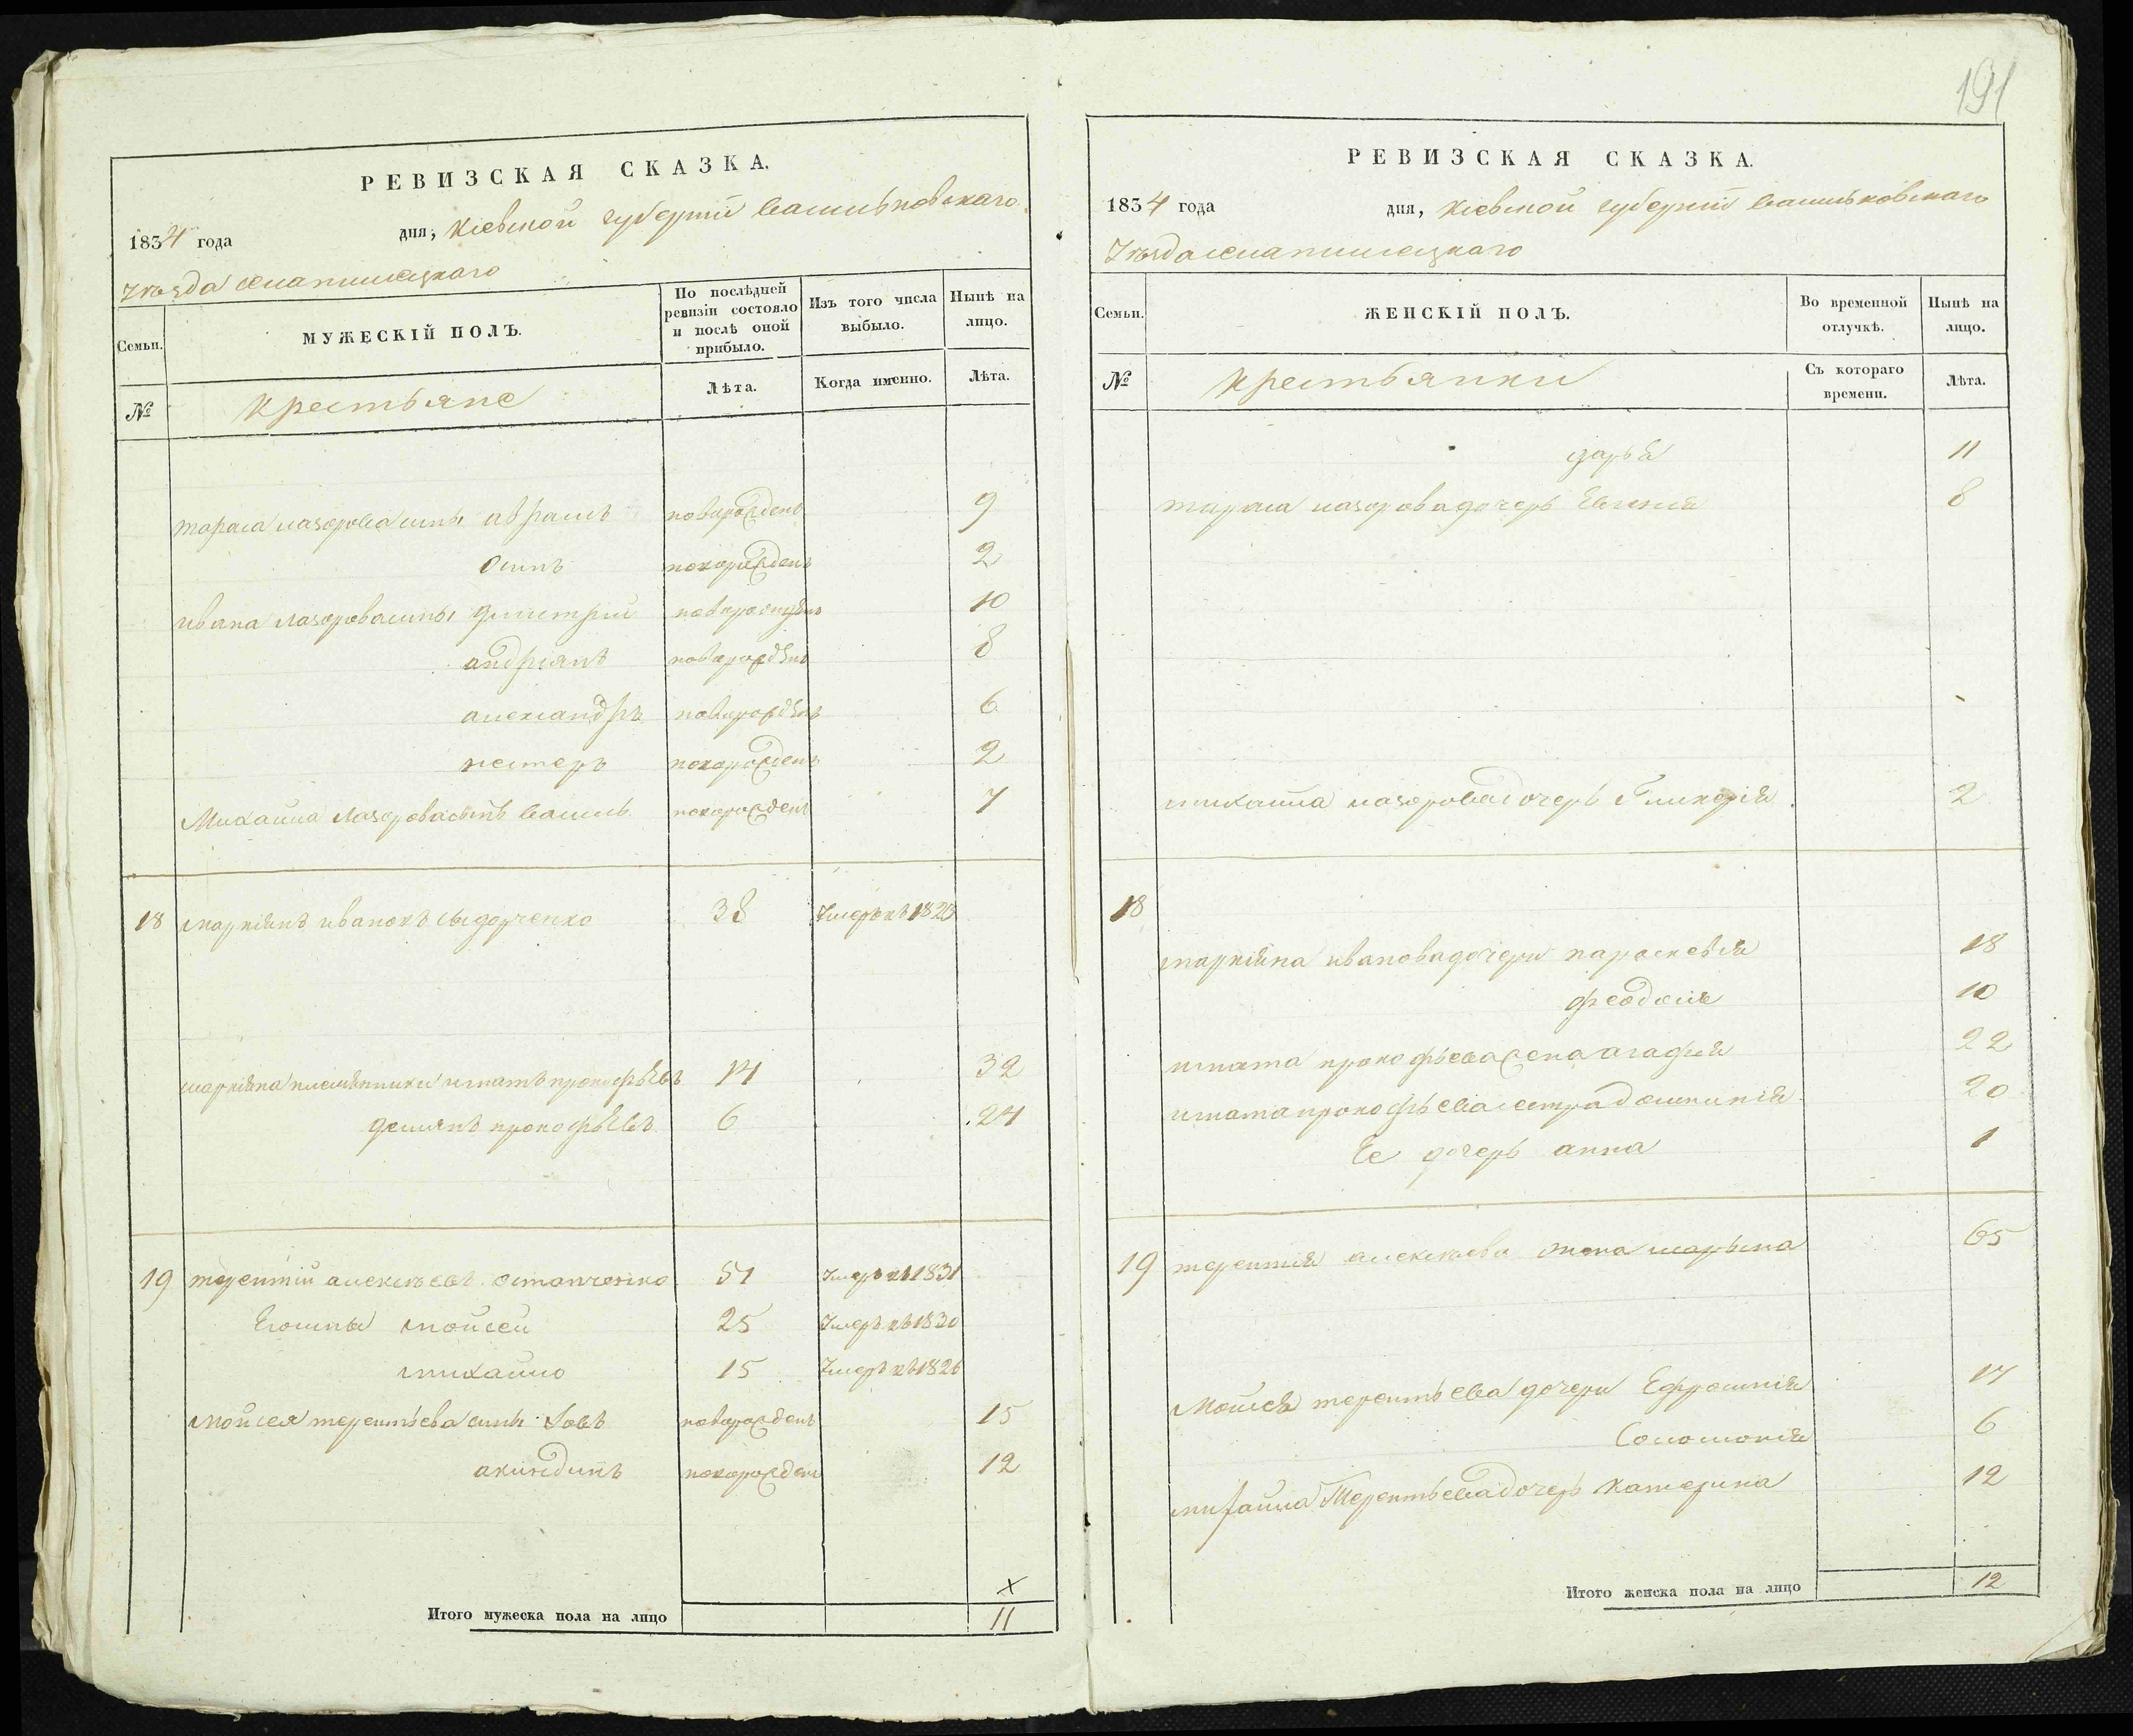 191
РЕВИЗСКАЯ СКАЗКА.
1834 года дня, Кіевской губерніи Васильковскаго
Уѣзда
Семьи.
МУЖЕСКІЙ ПОЛЪ.
По послѣдней ревизіи состояло и послѣ оной прибыло.
Изъ того числа выбыло.
Нынѣ на лицо.
№
Крестьяне
Лѣта.
Когда именно.
Лѣта.
Тараса Лазорова сыны Аврамъ новорожденъ 9
Осипъ новорожденъ 2
Ивана Лазорова сыны Дмитрій новорожденъ 10
Андріянъ новорожденъ 8
Александръ новорожденъ 6
Нестеръ новорожденъ 2
Михайла Лазорова сынъ Василь новорожденъ 7
18 Маркіянъ Ивановъ Сыдорченко 38 Умеръ въ 1823
Маркіяна племянники Игнатъ Прокофьевъ 14 32
Демянъ Прокофьевъ 6 24
19 Терентій Алексѣевъ Остапченко 51 Умеръ въ 1831
Его сыны Мойсей 25 Умеръ въ 1830
Михайло 15 Умеръ въ 1826
Мойсея Терентьева сыны Іовъ новорожденъ 15
Акиндинъ новорожденъ 12
Итого мужеска пола на лицо 11
РЕВИЗСКАЯ СКАЗКА.
1834 года дня, Кіевской губерніи Васильковскаго
Уѣзда
Семьи.
ЖЕНСКІЙ ПОЛЪ.
Во временной отлучкѣ.
Нынѣ на лицо.
№
Крестьянки
Съ котораго времени.
Лѣта.
Дарья 11
Тараса Лазорова дочерь Евгенія 8
Михайла Лазорова дочерь Гликерія 2
18
Маркіяна Иванова дочери Параскевія 18
Феодосія 10
Игната Прокофьева жена Агафія 22
Игната Прокофьева сестра Домникія 20
Ее дочерь Анна 1
19 Терентія Алексѣева жена Марьяна 65
Мойсея Терентьева дочери Ефросинія 17
Соломонія 6
Михайла Терентьева дочерь Катерина 12
Итого женска пола на лицо 12